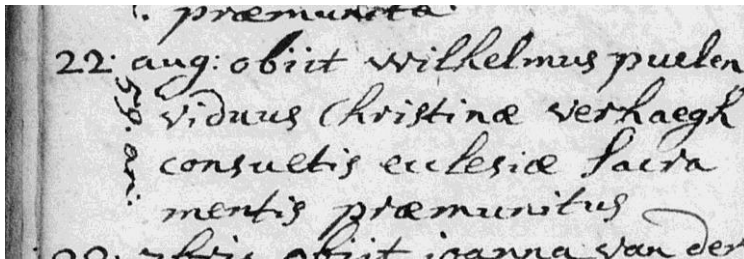 præmunita
22: aug: obiit wilhelmus puelen
viduus Christinæ verhaegh
59. an:
consuetis ecclesiæ sacra
mentis præmunitus
obiit joanna van der